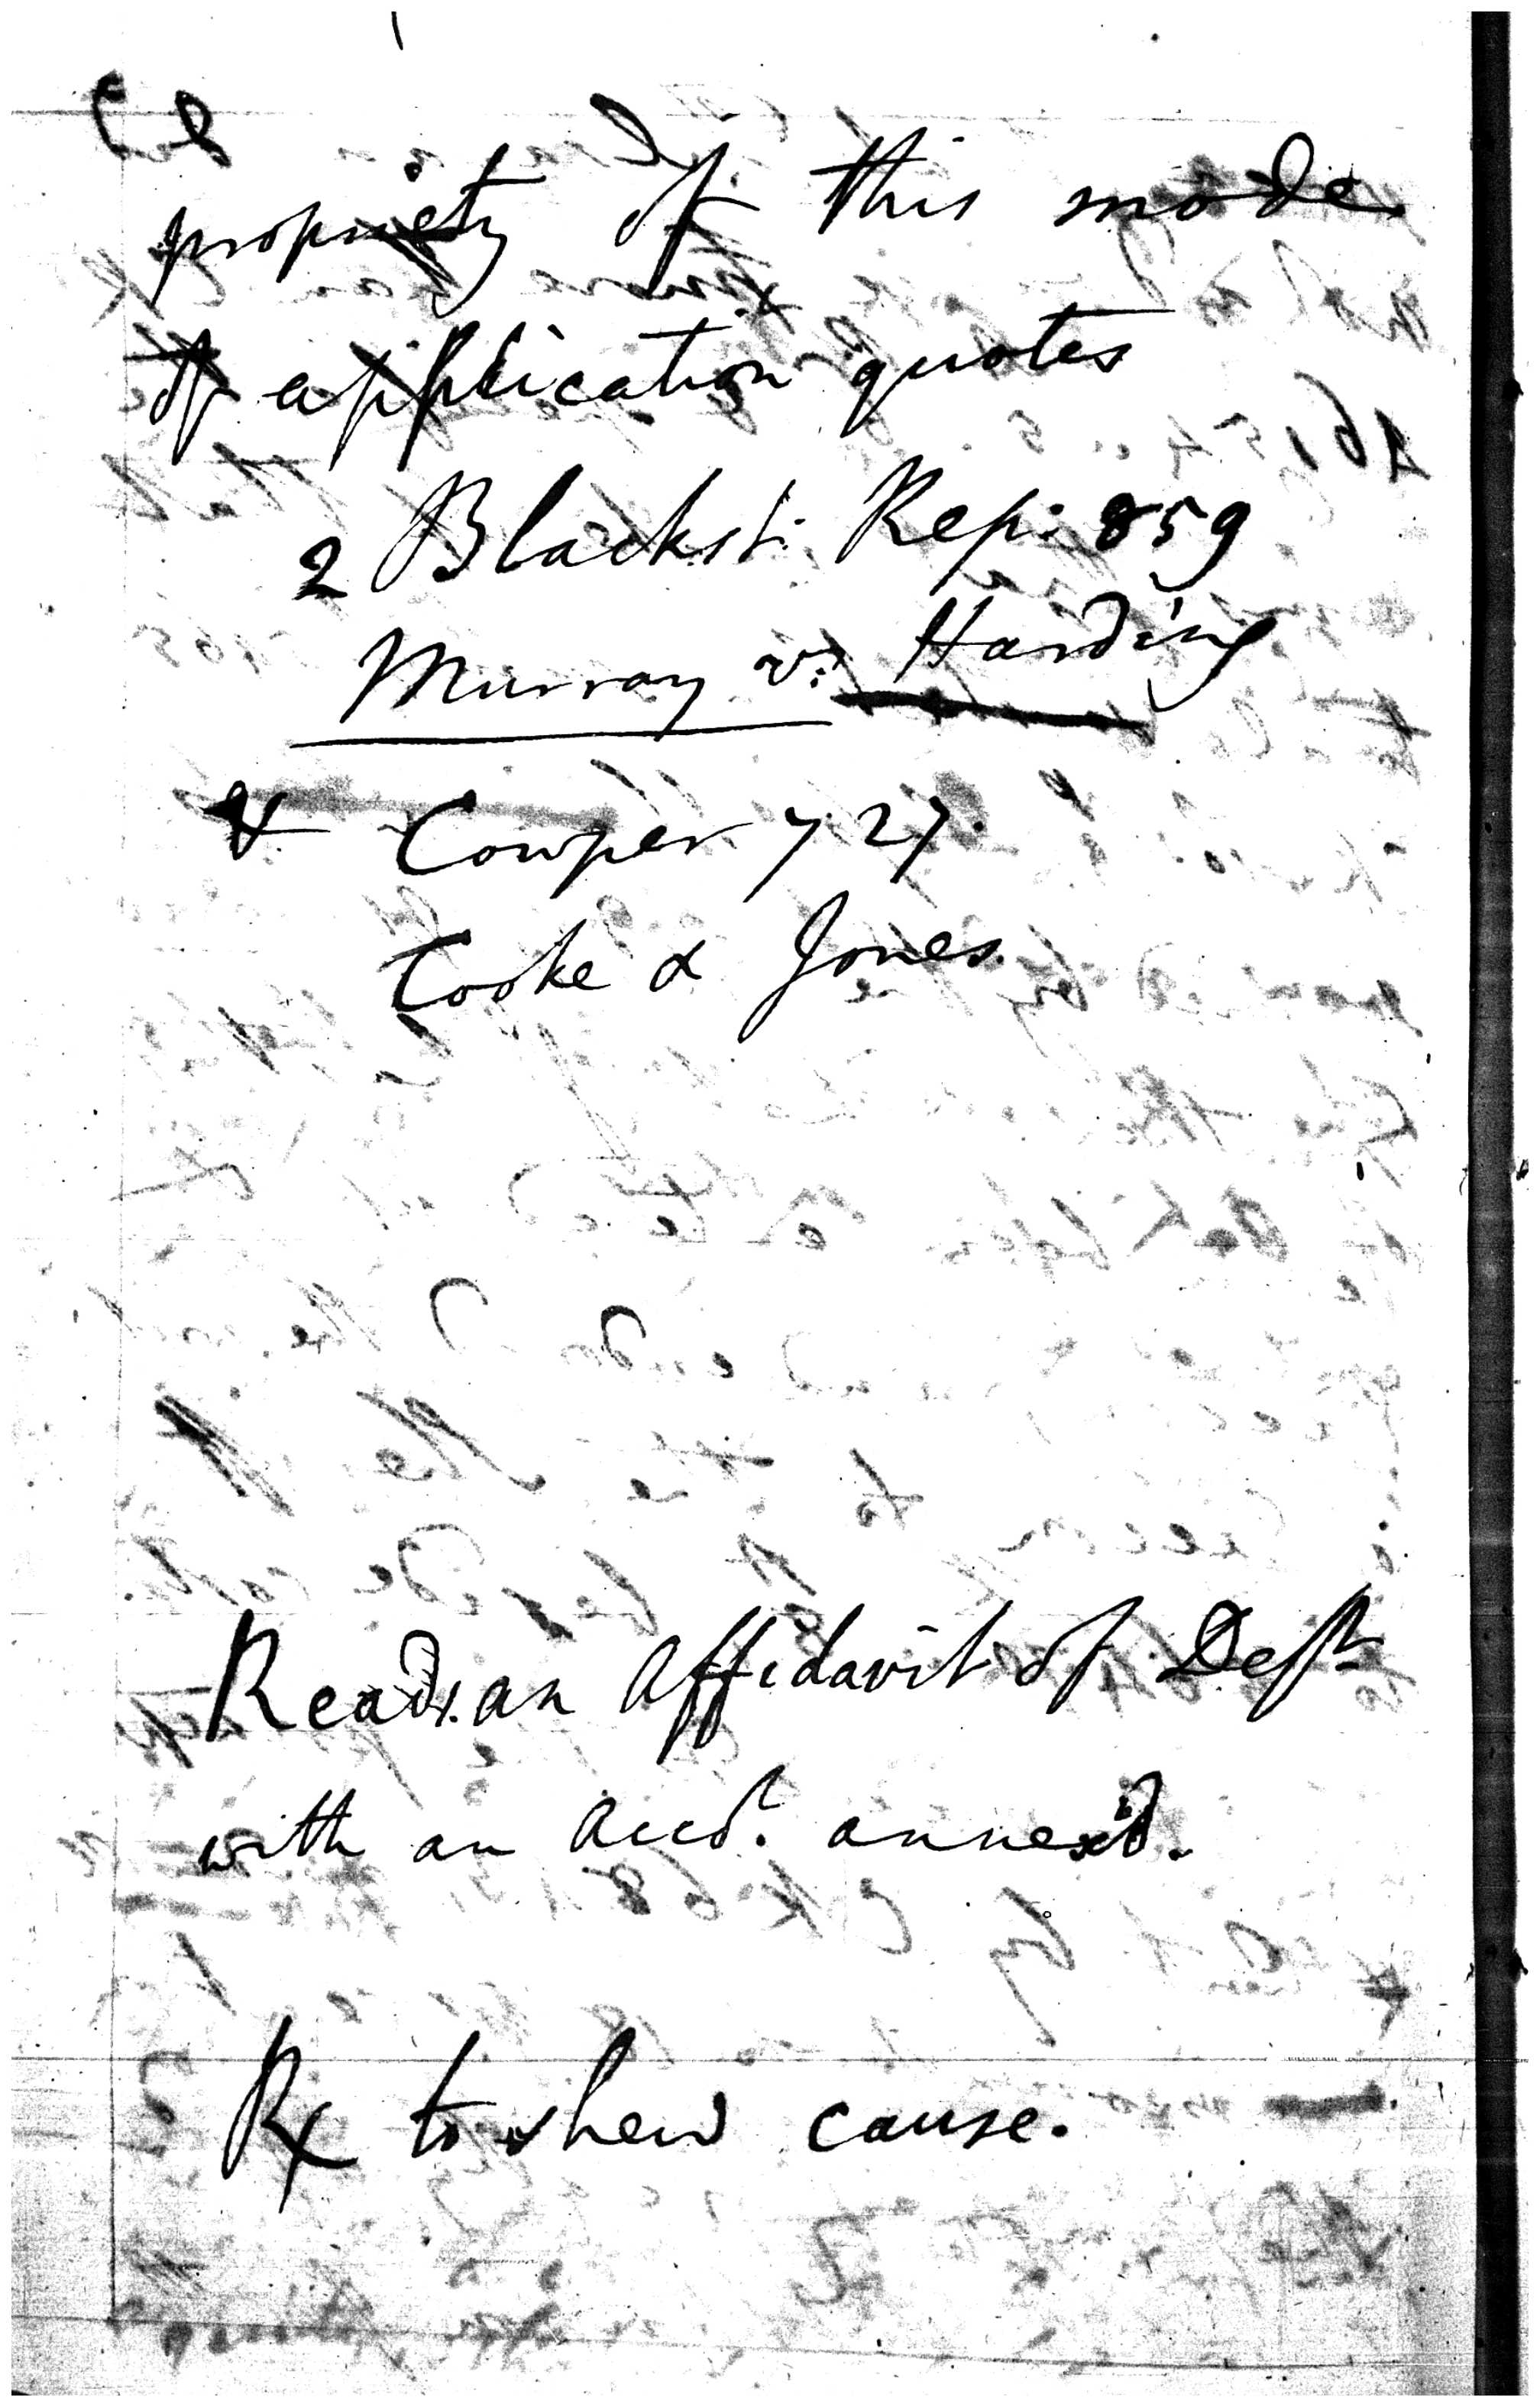 propriety of this mode
of application quotes
2 Blackst: Rep: 859
Murray v: Harding
& Cowper 727.
Cooke & Jones.
Reads an Affidavit of Deft
with an Acct. annex'd.
Rx to shew cause.